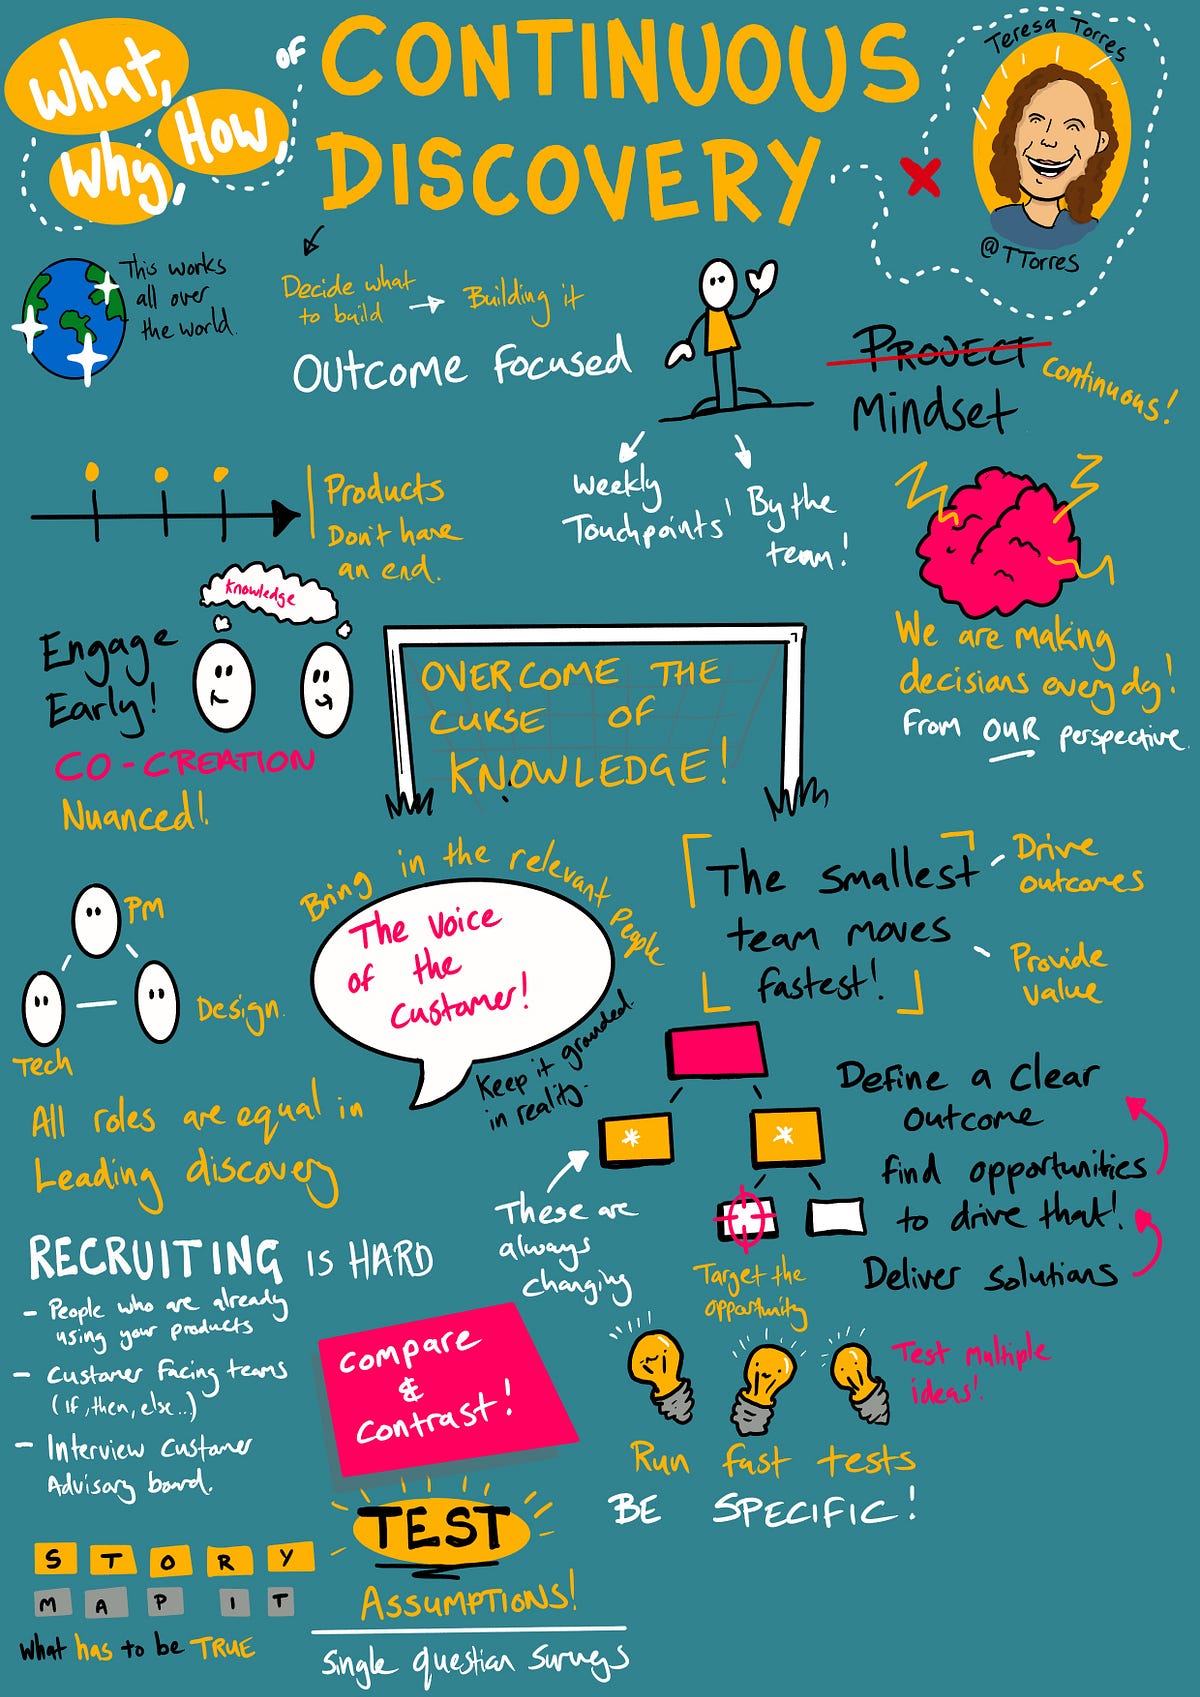 What,
Why,
How,
OF
CONTINUOUS
DISCOVERY
Teresa Torres
@TTorres
This works
all over
the world.
Decide what
to build
Building it
Outcome Focused
PROJECT
Continuous!
Mindset
Products
Don't have
an end.
Weekly
Touchpoints
By the
team!
Knowledge
Engage
Early!
CO-CREATION
Nuanced!
OVERCOME THE
CURSE OF
KNOWLEDGE!
We are making
decisions everyday!
From OUR perspective.
PM
Design.
Tech
All roles are equal in
Leading discovery
Bring in the relevant People
The Voice
of the
customer!
Keep it grounded.
in reality.
The smallest
team moves
fastest!
Drive
outcomes
Provide
value
Define a clear
outcome
find opportunities
to drive that!
Deliver solutions
These are
always
changing
Target the
opportunity
RECRUITING IS HARD
- People who are already
using your products
- Customer facing teams
(if, then, else...)
- Interview customer
Advisory board.
Compare
&
contrast!
Test multiple
ideas!
Run fast tests
BE SPECIFIC!
STORY
MAP IT
What has to be TRUE
TEST
ASSUMPTIONS!
Single question surveys